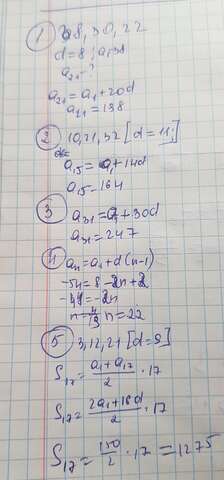 ① 38, 30, 22
d=8; a₁38
a₂₁ ?
a₂₁ = a₁ + 20d
a₂₁ = 198
② 10, 21, 32 [d = 11;]
a₁₅ = a₁ + 14d
a₁₅ = 164
③ a₃₁ = a₁ + 30d
a₃₁ = 247
4 aₙ = a₁ + d(n-1)
-54 = 8 - 2n + 2
-44 = -2n
n = 22
⑤ 3, 12, 21 [d = 9]
S₁₇ = (a₁ + a₁₇)/2 · 17
S₁₇ = (2a₁ + 16d)/2 · 17
S₁₇ = 150/2 · 17 = 1275